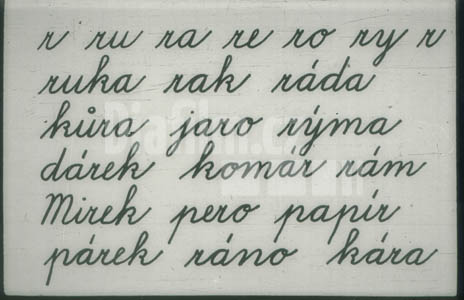 r ru ra re ro ry r
ruka rak ráda
kůra jaro rýma
dárek komár rám
Mirek pero papír
párek ráno kára